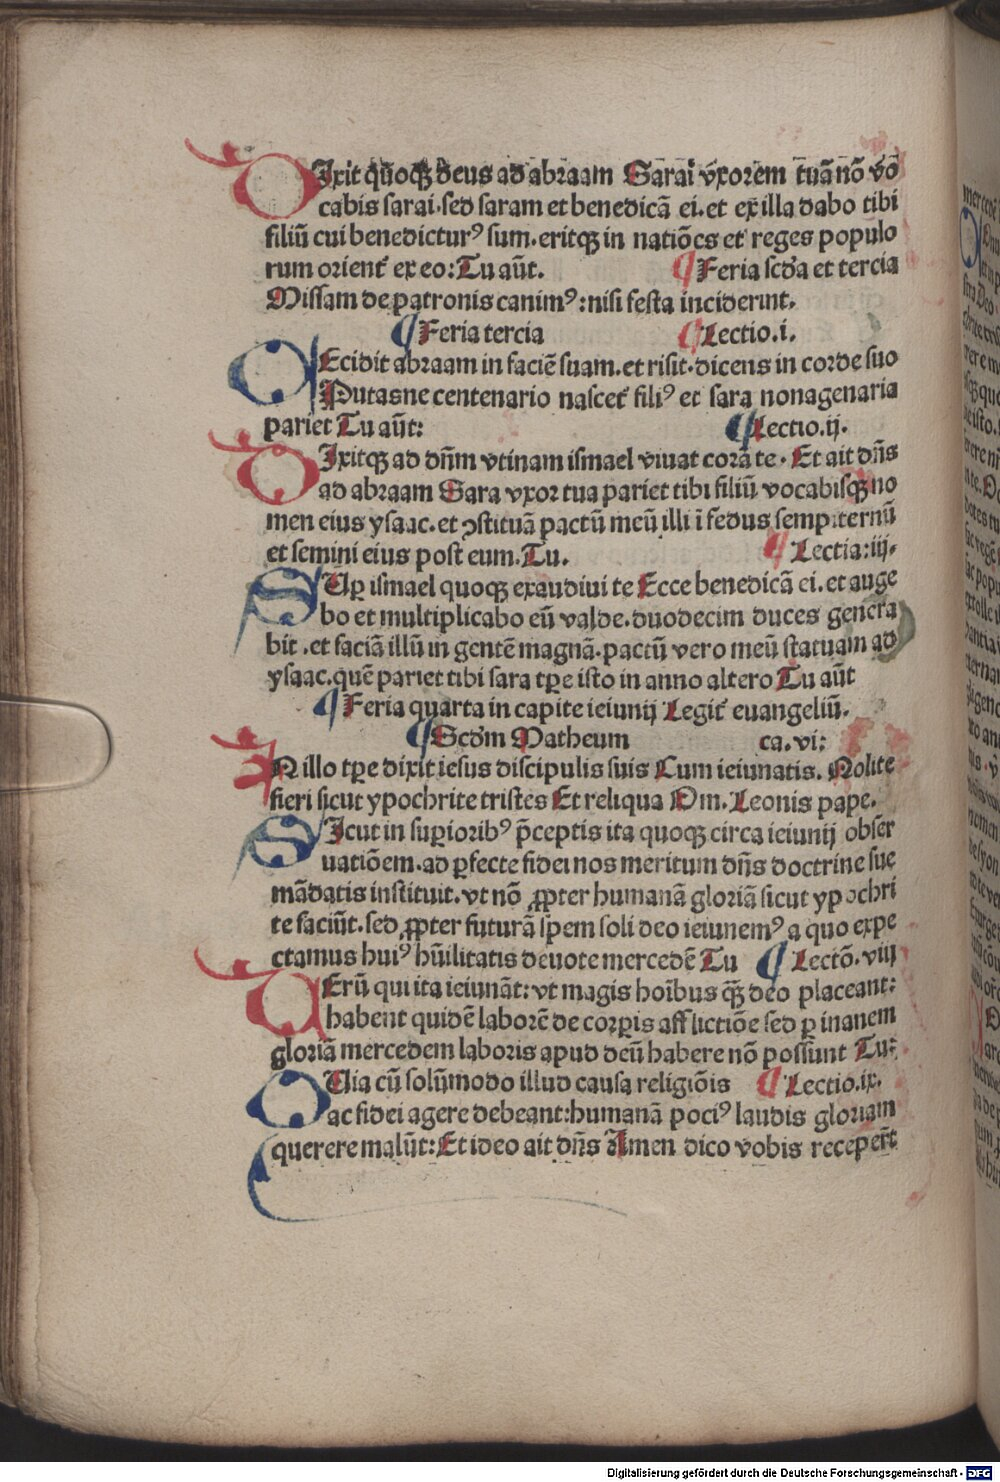 DIxit quoqꝫ deus ad abraam Sarai vxorem tuā nō vo
cabis sarai.sed saram et benedicā ei.et ex illa dabo tibi
filiū cui benedicturꝰ sum.eritqꝫ in natiōes et reges populo
rum orient̄ ex eo:Tu aūt. ¶ Feria scđa et tercia
Missam de patronis canimꝰ:nisi festa inciderint.
¶ Feria tercia ¶ Lectio.i.
CEcidit abraam in faciē suam.et risit.dicens in corde suo
Putasne centenario nascet̄ filiꝰ et sara nonagenaria
pariet Tu aūt: ¶ Lectio.ij.
DIxitqꝫ ad dn̄m vtinam ismael viuat corā te. Et ait dn̄s
ad abraam Sara vxor tua pariet tibi filiū vocabisqꝫ no
men eius ysaac.et ꝯstituā pactū meū illi ī fedus sempiternū
et semini eius post eum.Tu. ¶ Lectia:iij.
SUꝑ ismael quoqꝫ exaudiui te Ecce benedicā ei.et auge
bo et multiplicabo eū valde.duodecim duces genera
bit.et faciā illū in gentē magnā.pactū vero meū statuam ad
ysaac.quē pariet tibi sara tꝑe isto in anno altero Tu aūt
¶ Feria quarta in capite ieiunij Legit̄ euangeliū.
¶ Scđm Matheum ca.vi:
IN illo tꝑe dixit iesus discipulis suis Cum ieiunatis. Nolite
fieri sicut ypochrite tristes Et reliqua Om. Leonis pape.
SIcut in suꝑioribꝰ p̄ceptis ita quoqꝫ circa ieiunij obser
uatiōem.ad ꝑfecte fidei nos meritum dn̄s doctrine sue
mādatis instituit.vt nō ꝓpter humanā gloriā sicut ypochri
te faciūt.sed ꝓpter futurā spem soli deo ieiunemꝰ a quo expe
ctamus huiꝰ hūilitatis deuote mercedē Tu ¶ Lectō.viij
UErū qui ita ieiunāt:vt magis hoībus qꝫ̄ deo placeant:
habent quidē laborē de corꝑis afflictiōe sed ꝑ inanem
gloriā mercedem laboris apud deū habere nō possunt Tu:
QUia cū solūmodo illud causa religiōis ¶ Lectio.ix.
ac fidei agere debeant:humanā pociꝰ laudis gloriam
querere malūt:Et ideo ait dn̄s Amen dico vobis receper̄t
Digitalisierung gefördert durch die Deutsche Forschungsgemeinschaft - DFG